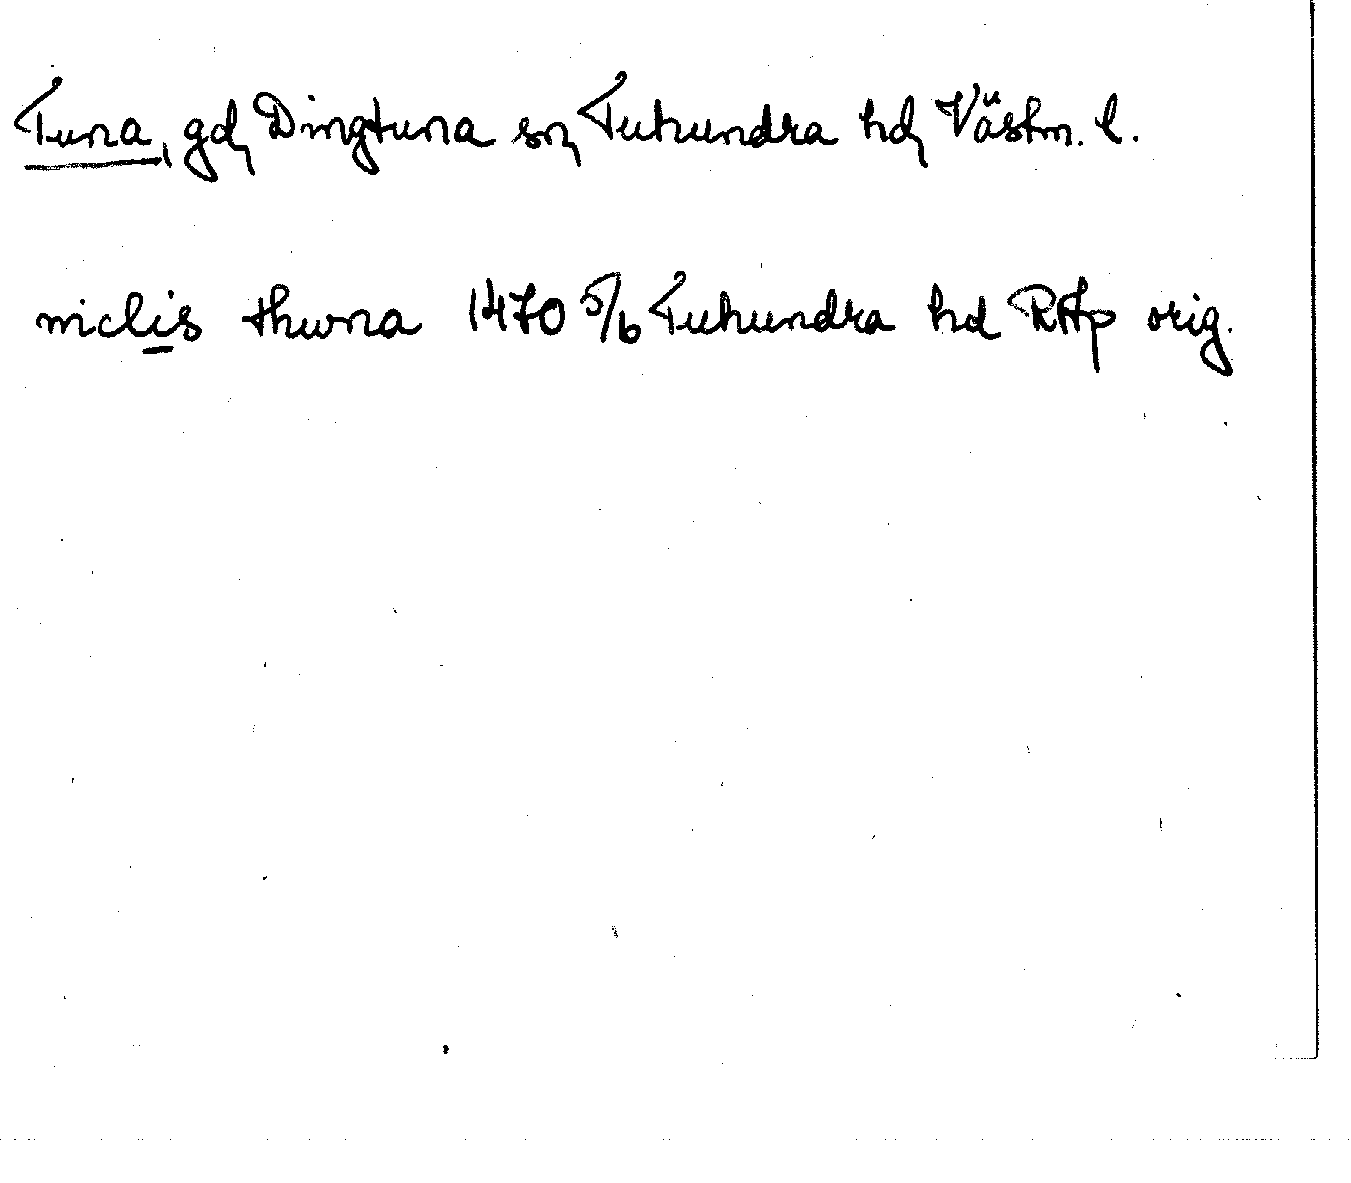 Tuna, gd, Dingtuna sn, Tuhundra hd, Västm. l.
niclis thwna 1470 5/6 Tuhundra hd RAp orig.